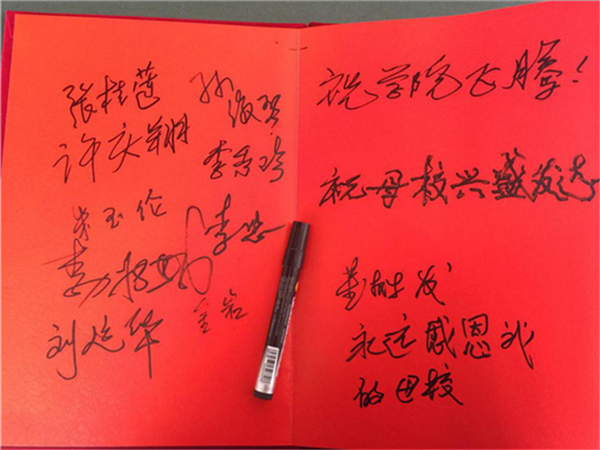 张桂莲
孙俊
许庆翔
李秀珍
朱玉伦
李忠
李
金岩
刘延华
祝学院飞腾!
祝母校兴盛发达
发
永远感恩我
的母校